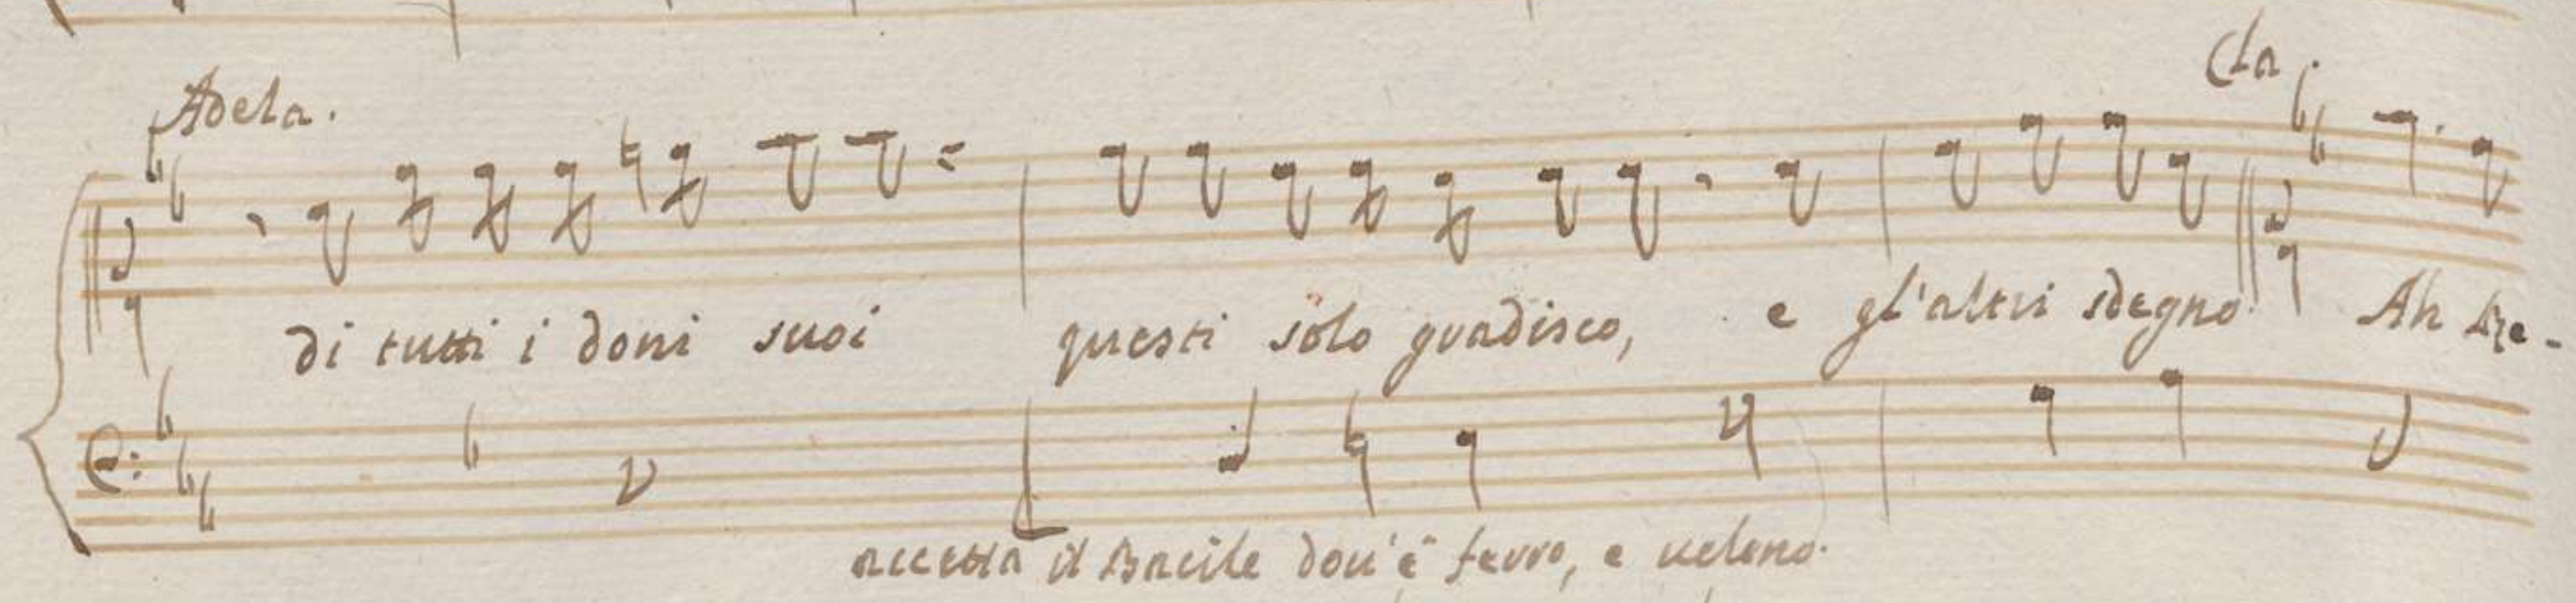 Adela.
Cla.
di tutti i doni suoi questi solo gradisco, e gl'altri sdegno. Ah Re-
accetta il Bacile dou'è ferro, e ueleno.